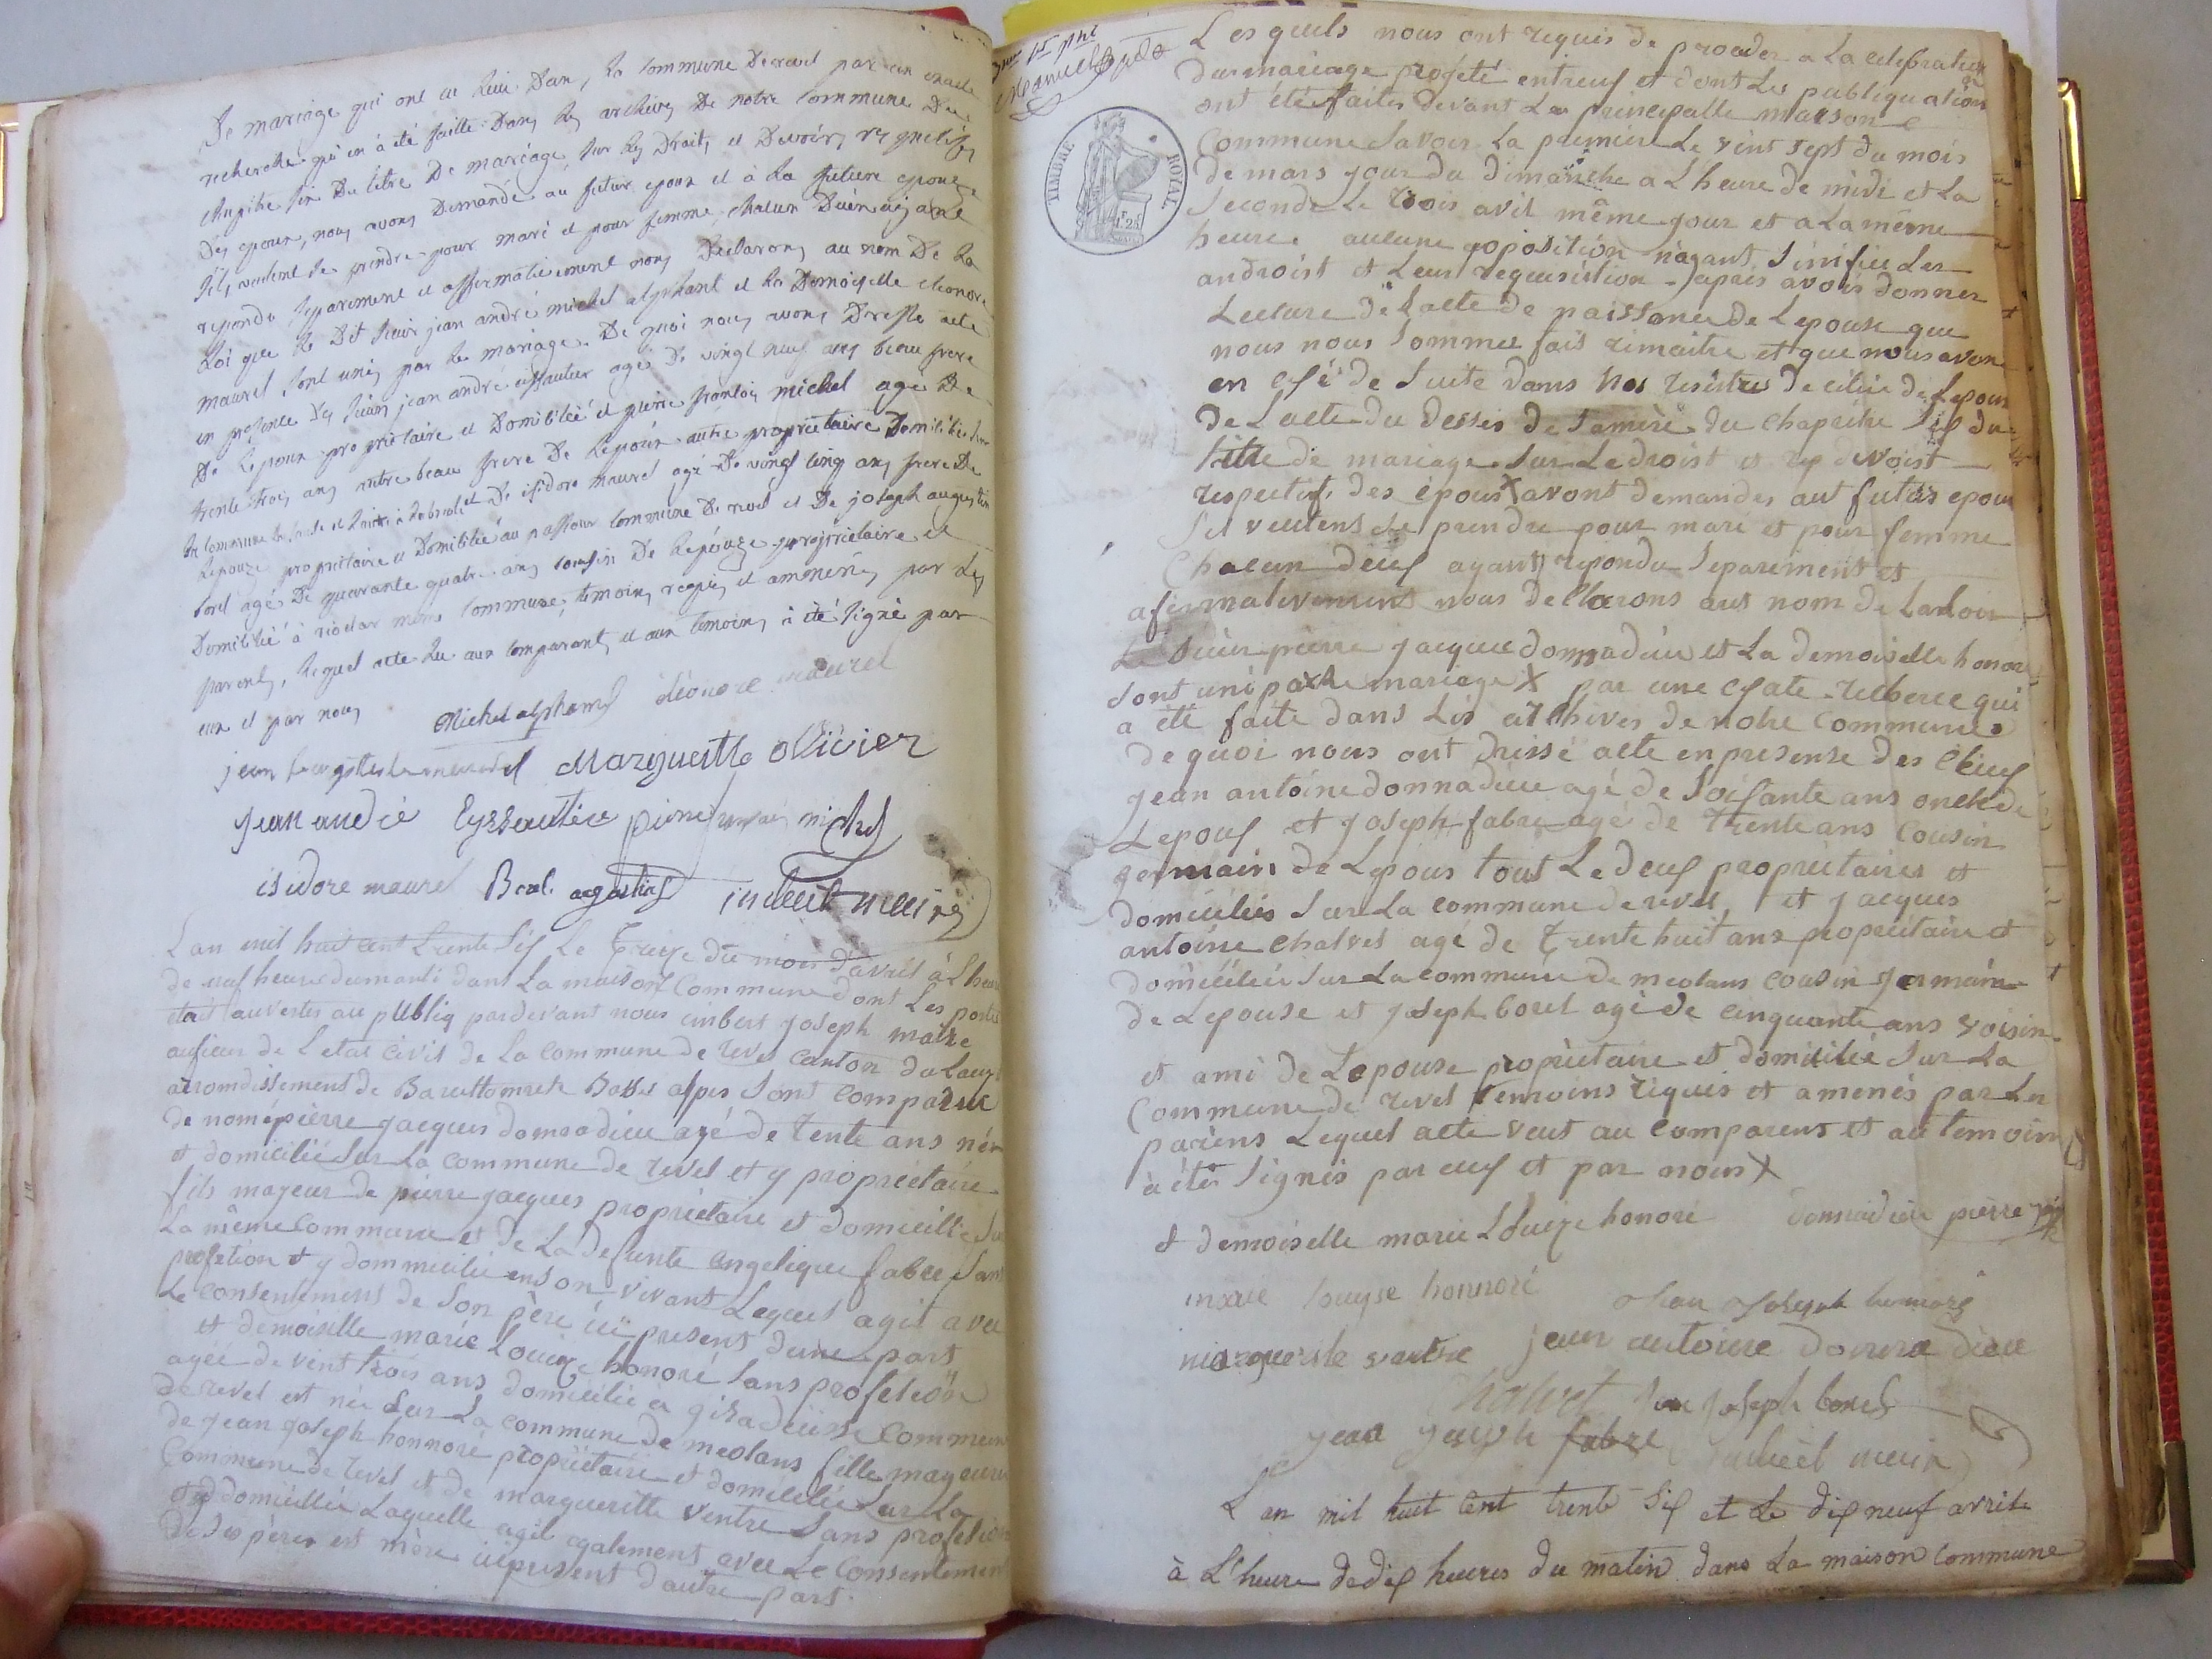 De mariage qui ont eu lieu Dans la Commune De revel par un exacte
recherche qui en à été faitte Dans les archives De notre Commune Du
chapitre six Du titre De mariage sur les Droits et Devoirs respectifs
Des epoux, nous avons Demandé au futur epoux et à la future epouze
s'ils veulent se prendre pour mari et pour femme, chacun D'eux ayant
repondu separement et affirmativement nous Declarons au nom De la
Loi que le Dit sieur jean andré michel alphant et la Demoiselle eleonore
maurel, sont unis par le mariage. De quoi nous avons Dressé acte
en presence Des sieurs jean andré eissautier agé De vingt neuf ans beau frere
De l'epoux proprietaire et Domicilié et pierre françois michel agé De
trente trois ans autre beau frere De l'epoux autre proprietaire Domicilié sur
la commune et De isidore maurel agé De vingt cinq ans frere De
L'epouze proprietaire et Domicilié au commune De revel et De joseph augustin
borel agé De quarante quatre ans cousin De l'epouze proprietaire et
Domicilié à rioclar même Commune, temoins requis et ammenés par les
parents, lequel acte lu aux comparants et aux temoins à été signé par
eux et par nous
Michel alphant éléonore maurel
jean maurel Margueritte ollivier
jean andré Eyssautier pierre michel
isidore maurel Borel agustin imbert maire
L an mil huit cent trente six Le treize du mois d'avril à L heure
de neuf heure du matin dans La maison Commune dont Les portes
etait ouvertes au publiq pardevant nous imbert joseph maire
oficier de L etat civil de La Commune de revel canton du Lauzet
arrondissement de Barcellonnete Basses alpes sont comparue
de nomé pierre jacques donnadieu agé de tente ans né
et domicilié sur La commune de revel et y propriétaire
fils mayeur de pierre jacques propriétaire et domicillié sur
La même Commune et de La defunte engelique fabre sans
profetion et y dommicilié en son vivant Lequel agit avec
Le consentement de Son père ici present dune part
et demoiselle marie Louize honoré sans profession
agée de vint trois ans domicilié a Commune
de revel est née sur La commune de meolans fille mayeure
de jean joseph honnoré propriétaire et domicilié sur La
Commune de revel et de margueritte ventre sans profession
et y domicillié Laquelle agit egalement avec Le Consentement
de ses père et mère ici present d'autre part.
Manuel
TIMBRE ROYAL
1 F. 25
Les quels nous ont requis de proceder a La celebration
du mariage projeté entreux et dont Les publiquation
ont été faites devant La principalle maison
Commune savoir La première Le vint sept du mois
de mars jour du dimanche a L heure de midi et La
seconde Le trois avil même jour et a La même
heure. aucune oposition nayant sinifiée Les
androist et Leur requisition apres avoir donner
Lecture de L acte de naissance de Lepouse que
nous nous Sommes fais rimaitre et que nous avon
en de Suite dans nos resistres de de Lepous
de L acte du desses de Sa mère du chapritre Sis du
titre de mariage sur Le droist et les devoist
respectifs des épous X avont demandes aut futurs epous
Sil veutens se prendre pour mari et pour femme
Chacun deux ayant repondu separement et
afirmativement nous declarons aut nom de La loi
Le sieur pierre jacques donnadieu et La demoiselle honoré
sont uni par le mariage X par une exate recherce qui
a été faite dans Les archives de notre Commune
de quoi nous ont drissé acte en presense des sieur
jean antoine donnadieu agé de soisante ans oncle de
Lepous et joseph fabre agé de trente ans Cousin
germain de Lepous tout Le deux propriétaires et
domiciliés sur La commune de revel, et jacques
antoine chalvet agé de trente huit ans propriétaire et
domicilié sur La commune de meolans cousin germain
de Lepouse et joseph borel agé de cinquante ans voisin
et ami de Lepouse propriétaire et domicilié sur La
Commune de revel temoins riquis et amenés par Les
pariens Lequel acte veut au comparens et au temoin
à été signés par eux et par nous X
et demoiselle marie Louize honoré donnadieu pierre
marie louyse honnoré Jean Joseph honnoré
marguerite ventre jean antoine donnadieu
Chalvet Jean joseph borel
jean joseph fabre imbert maire
L an mil huit cent trente six et Le dix neuf avril
à L'heure de dix heures du matin dans La maison Commune